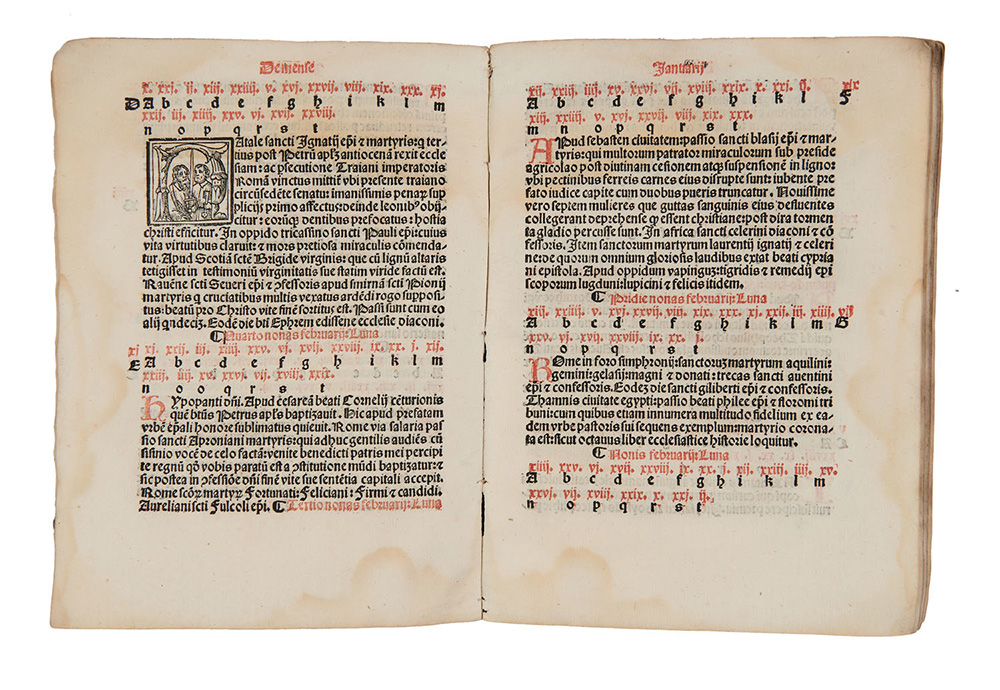 Demense
xxj. ij. xiij. xxiiij. v. xvj. xxvij. viij. xix. xxx. xj.
D A b c d e f g h i k l m
xxij. iij. xiiij. xxv. vj. xvij. xxviij.
n o p q r s t
Atale sancti Ignatij ep̄i ⁊ martyris: q ter
tius post Petrū apl̄m antiocenā rexit eccle
siam: ac p̄secutione Traiani imperatoris
Romā vinctus mittit᷑ vbi presente traiano
circūsedēte senatu: imanissimis penaꝝ sup
plicijs primo affectus: deinde leonibꝰ obij
citur: eorūqꝫ dentibus prefocatus: hostia
christi efficitur. In oppido tricassino sancti Pauli ep̄i: cuius
vita virtutibus claruit: ⁊ mors pretiosa miraculis cōmenda
tur. Apud Scotiā sctē Brigide virginis: que cū lignū altaris
tetigisset in testimoniū virginitatis sue statim viride factū est.
Rauēne scti Seueri ep̄i ⁊ ꝯfessoris apud smirnā scti Pionij
martyris q cruciatibus multis vexatus ardēdi rogo supposi
tus: beatū pro Christo vite finē sortitus est. Passi sunt cum eo
alij qndeciȝ. Eodē die bt̄i Ephrem edissene ecclesie diaconi.
¶ Quarto nonas februarij: Luna
xj. xij. iij. xiiij. xxv. vj. xvij. xxviij. ix. xx. j. xij.
E A b c d e f g h i k l m
xxiij. iiij. xv. xxvj. vij. xviij. xxix.
n o p q r s t
Hypopanti dn̄i. Apud cesareā beati Cornelij cēturionis
quē bt̄us Petrus apl̄s baptizauit. Hic apud prefatam
vrbē ep̄ali honore sublimatus quieuit. Rome via salaria pas
sio sancti Aproniani martyris: qui adhuc gentilis audiēs cū
sisinnio vocē de celo factā: venite benedicti patris mei percipi
te regnū qđ vobis paratū est a ꝯstitutione mūdi baptizatur: ⁊
sic postea in ꝯfessiōe dn̄i finē vite sue sentētia capitali accepit.
Rome scōȝ martyꝝ Fortunati: Feliciani: Firmi ⁊ candidi.
Aureliani scti Fulcoli ep̄i. ¶ Tertio nonas februarij: Luna
Januarij
xij. xxiij. iiij. xv. xxvj. vij. xviij. xxix. x. xxj. ij. xix
A b c d e f g h i k l
xiij. xxiiij. v. xvj. xxvij. viij. xix. xxx.
m n o p q r s t
Apud sebasten ciuitatem: passio sancti blasij ep̄i ⁊ mar
tyris: qui multorum patrator miraculorum sub preside
agricolao post diutinam cesionem atqꝫ suspensionē in ligno:
vbi pectinibus ferreis carnes eius disrupte sunt: iubente pre
fato iudice capite cum duobus pueris truncatur. Nouissime
vero septem mulieres que guttas sanguinis eius defluentes
collegerant deprehense qꝫ essent christiane: post dira tormen
ta gladio percusse sunt. In africa sancti celerini diaconi ⁊ cō
fessoris. Item sanctorum martyrum laurentij ignatij ⁊ celeri
ne: de quorum omnium gloriosis laudibus extat beati cypria
ni epistola. Apud oppidum vapingus: tigridis ⁊ remedij epi
scoporum lugduni: lupicini ⁊ felicis itidem.
¶ Pridie nonas februarij: Luna
xiij. xxiiij. v. xvj. xxvij. viij. xix. xxx. xj. xxij. iij. xiiij. vij
A b c d e f g h i k l m G
xxv. vj. xvij. xxviij. ix. xx. j.
n o p q r s t
Rome in foro simphronij: sanctoruȝ martyrum aquilini:
gemini: gelasij: magni ⁊ donati: trecas sancti auentini
ep̄i ⁊ confessoris. Eodeȝ die sancti giliberti ep̄i ⁊ confessoris.
Thamnis ciuitate egypti: passio beati philee ep̄i ⁊ floromi tri
buni: cum quibus etiam innumera multitudo fidelium ex ea
dem vrbe pastoris sui sequens exemplum: martyrio corona
ta est: sicut octauus liber ecclesiastice historie loquitur.
¶ Nonis februarij: Luna
xiiij. xxv. vj. xvij. xxviij. ix. xx. j. xij. xxiij. iiij. xv.
A b c d e f g h i k l m
xxvj. vij. xviij. xxix. x. xxj. ij.
n o p q r s t